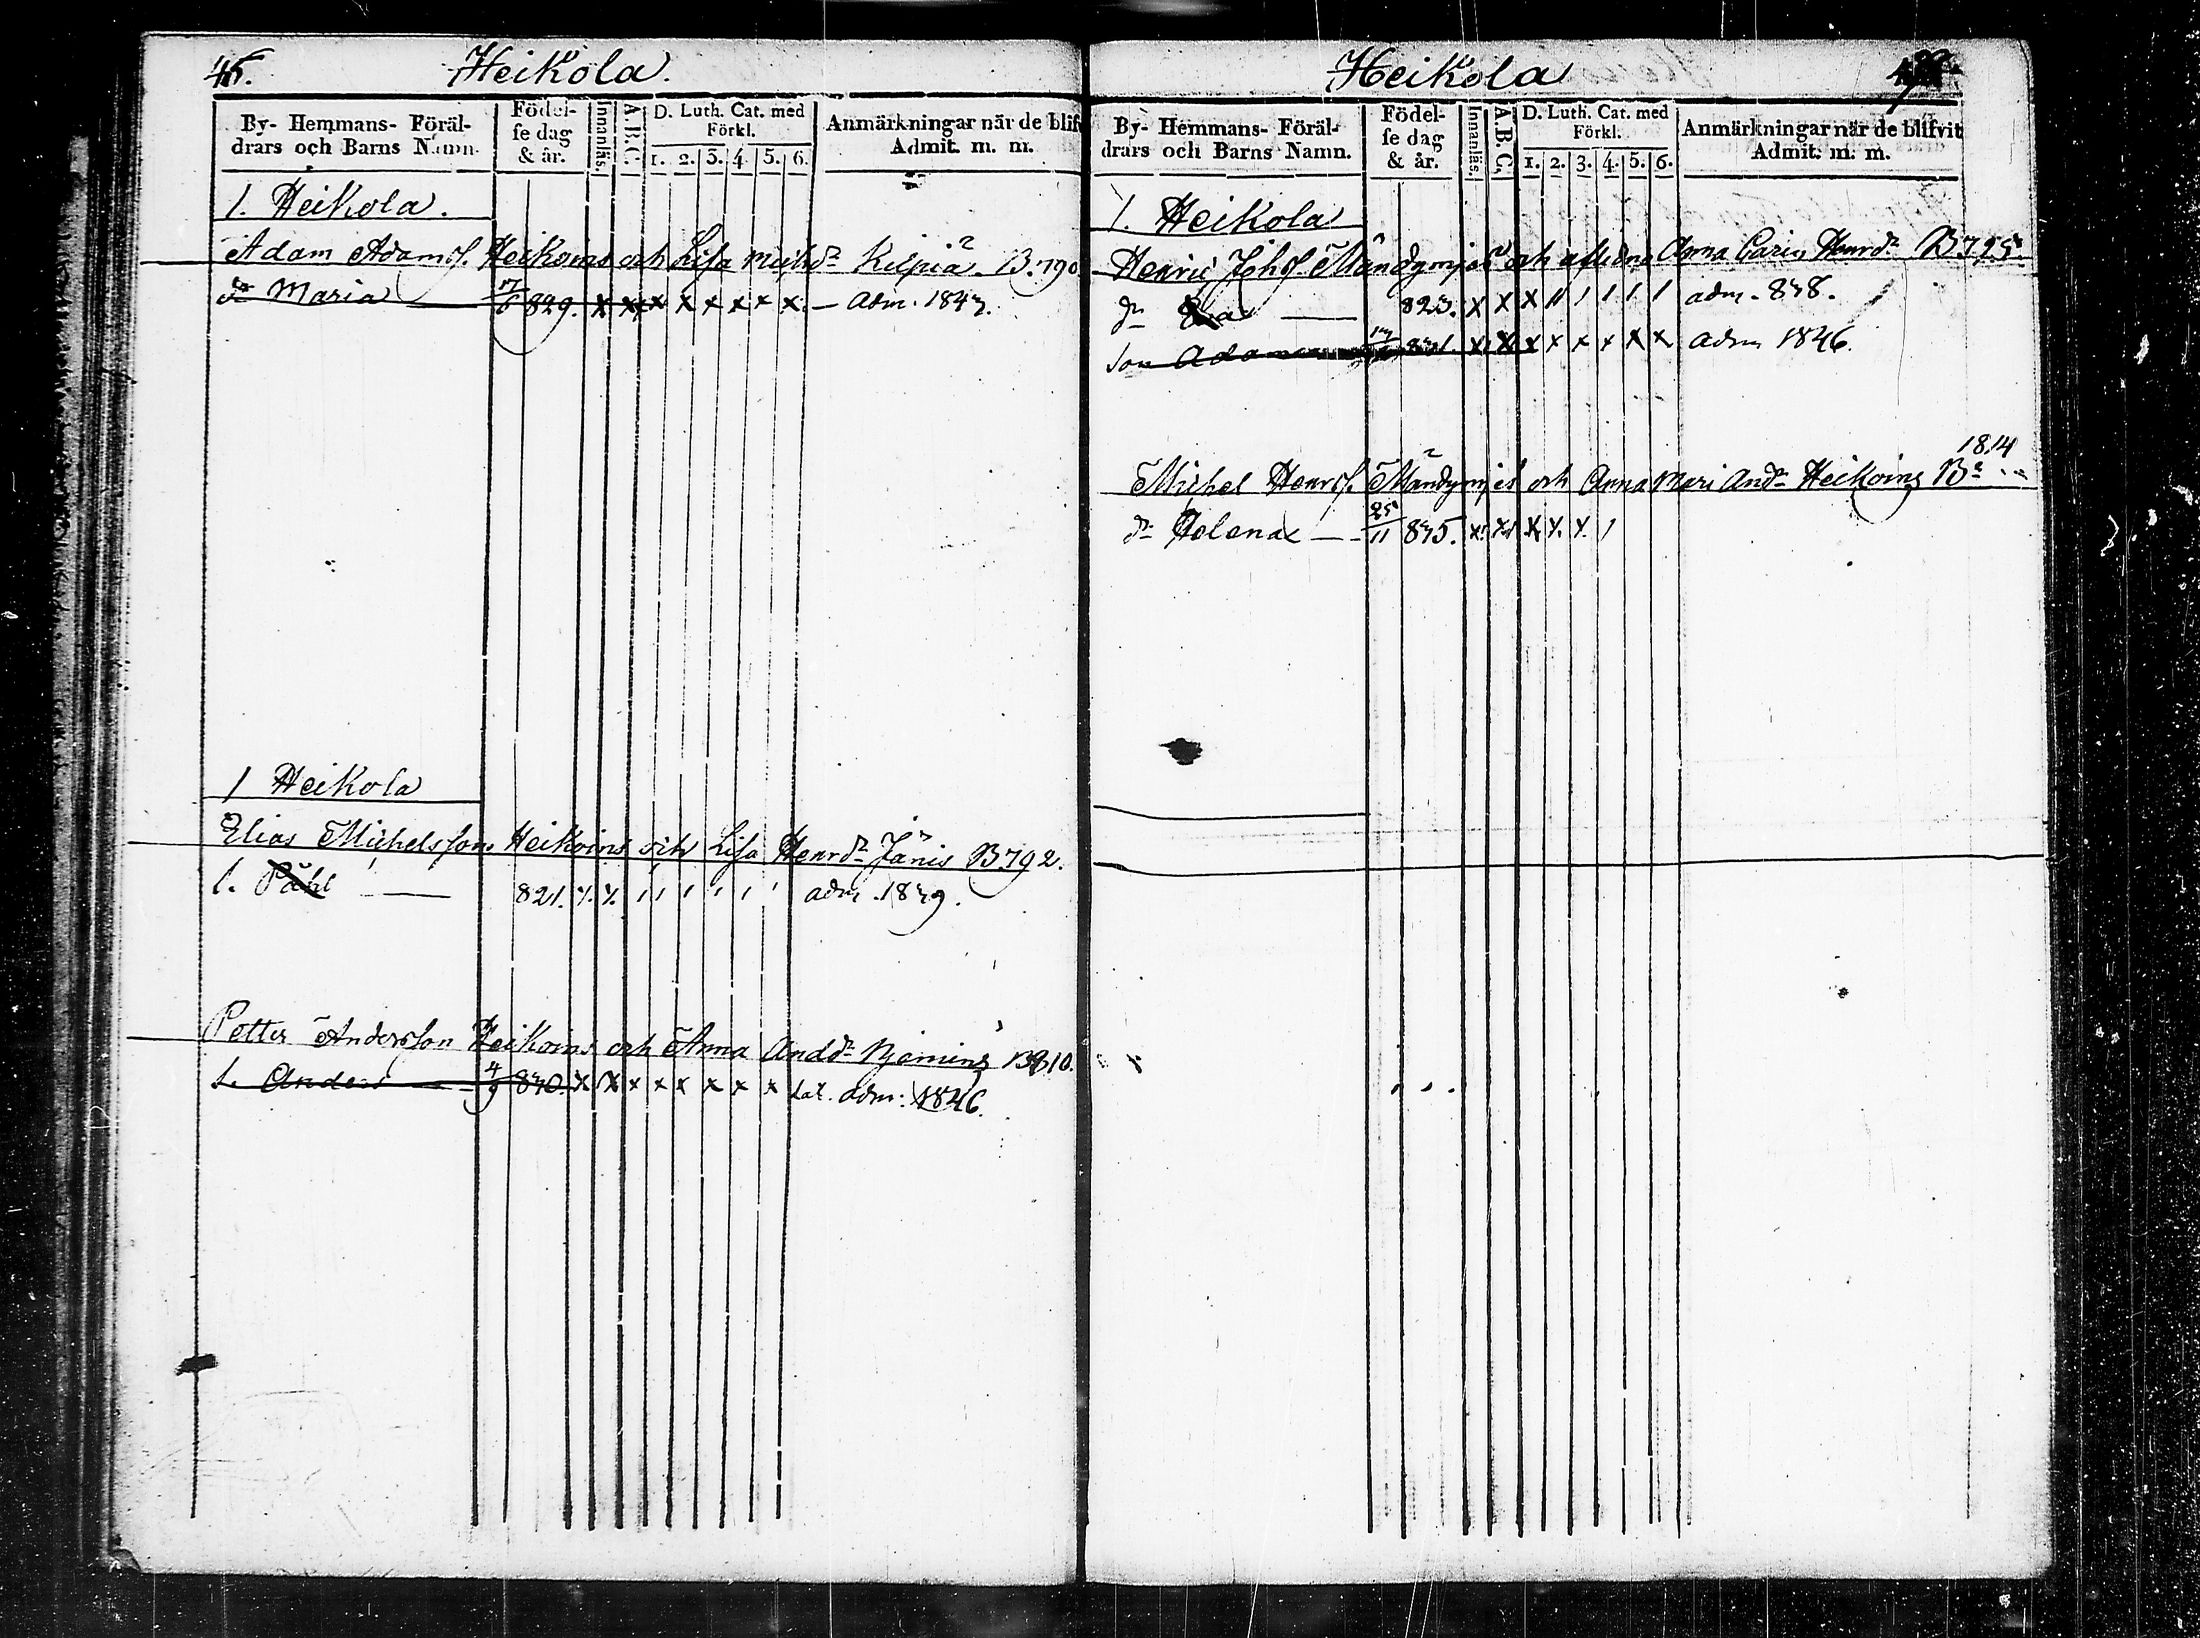 Heikola.
By- Hemmans- Föräl-
drars och Barns Namn.
Födel-
se dag
& år.
Innanläs.
A.B.C.
D. Luth. Cat. med
Förkl.
1. 2. 3. 4. 5. 6.
Anmärkningar när de blif
Admit. m. m.
1. Heikola.
Adam Adams. Heikoins och Lisa Michdr Kilpiä B.790
dr Maria 829. x x x x x x x x adm. 1843.
1 Heikola
Elias Michelsson Heikoins och Lisa Henrdr Jänis B792.
s. Påhl 821. adm. 1839.
Petter Andersson Heikoins och Anna Anddr B810.
s. Anders 4/9 830. x x x x x x x x adm: 1846.
Heikola
By- Hemmans- Föräl-
drars och Barns Namn.
Födel-
se dag
& år.
Innanläs.
A.B.C.
D. Luth. Cat. med
Förkl.
1. 2. 3. 4. 5. 6.
Anmärkningar när de blifvit
Admit. m. m.
1. Heikola
Henric Johs. och aflidna Anna Carin Henrdr B795.
dr 823. x x x adm. 838.
son Adam 831. x x x x x x x x adm 1846.
1814
Michel Henrs. och Anna Mari Anddr Heikoins Br
dr Helena 25/11 835.